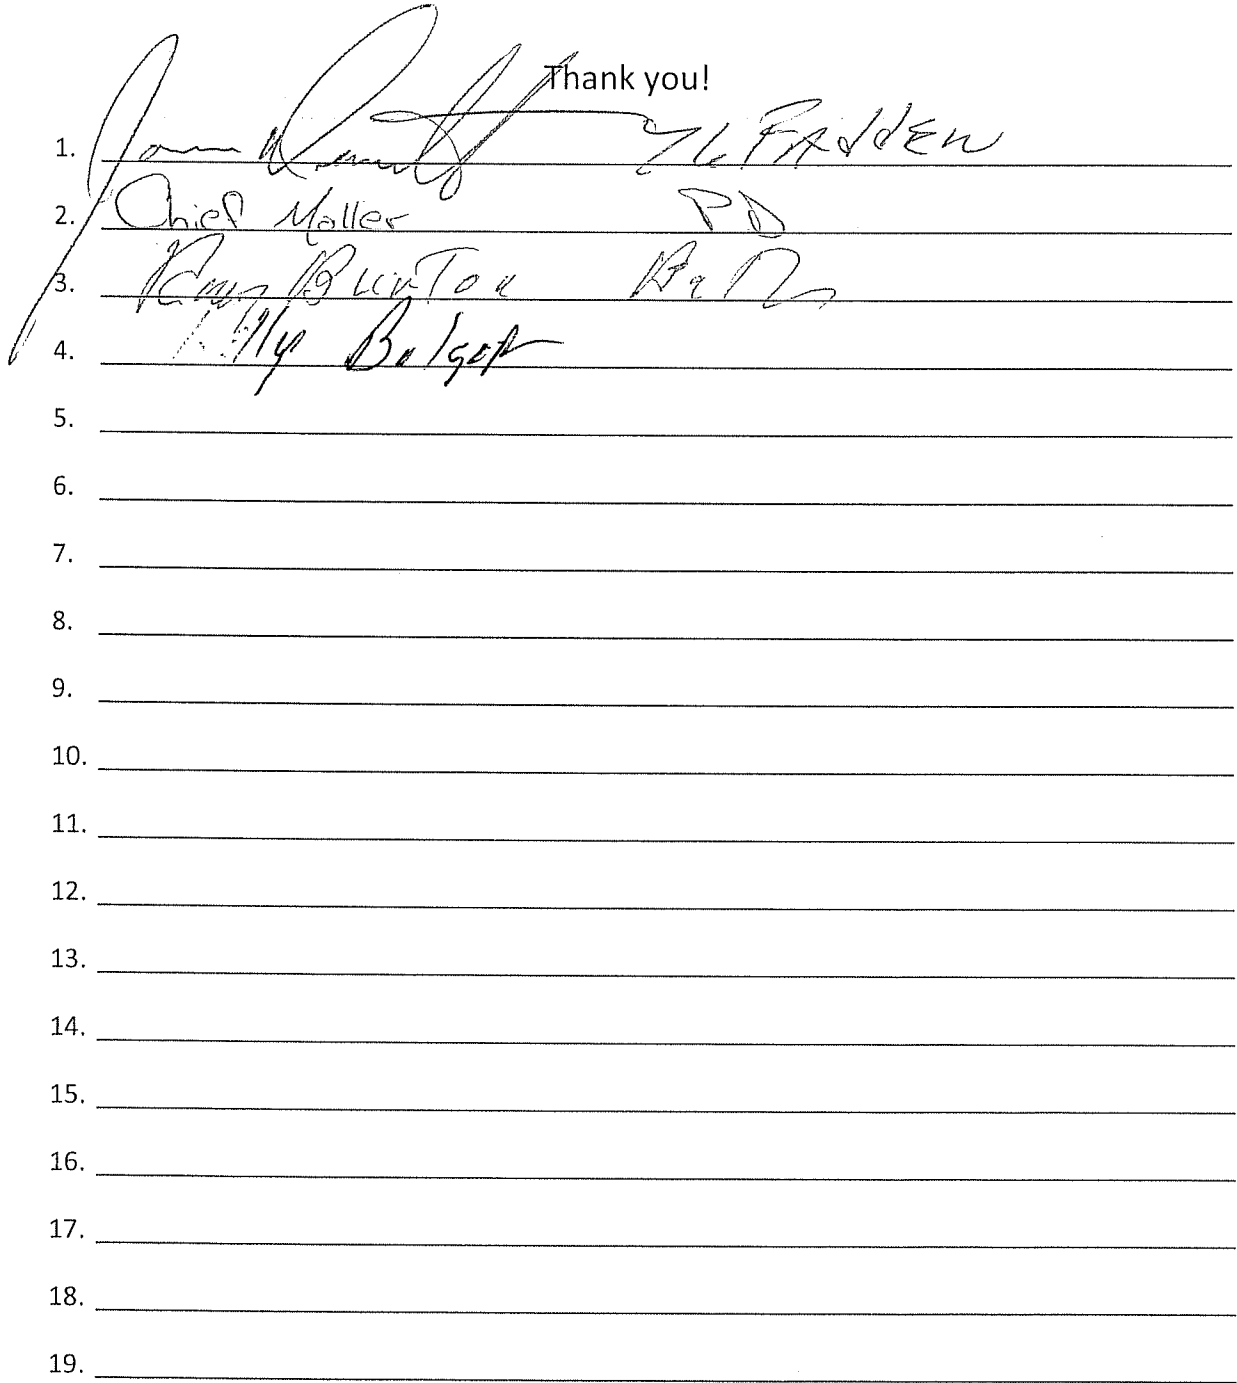 Thank you!
1. McFadden
2. Chief Moller PD
3. Bunton
4. Kelly Bolger
5.
6.
7.
8.
9.
10.
11.
12.
13.
14.
15.
16.
17.
18.
19.